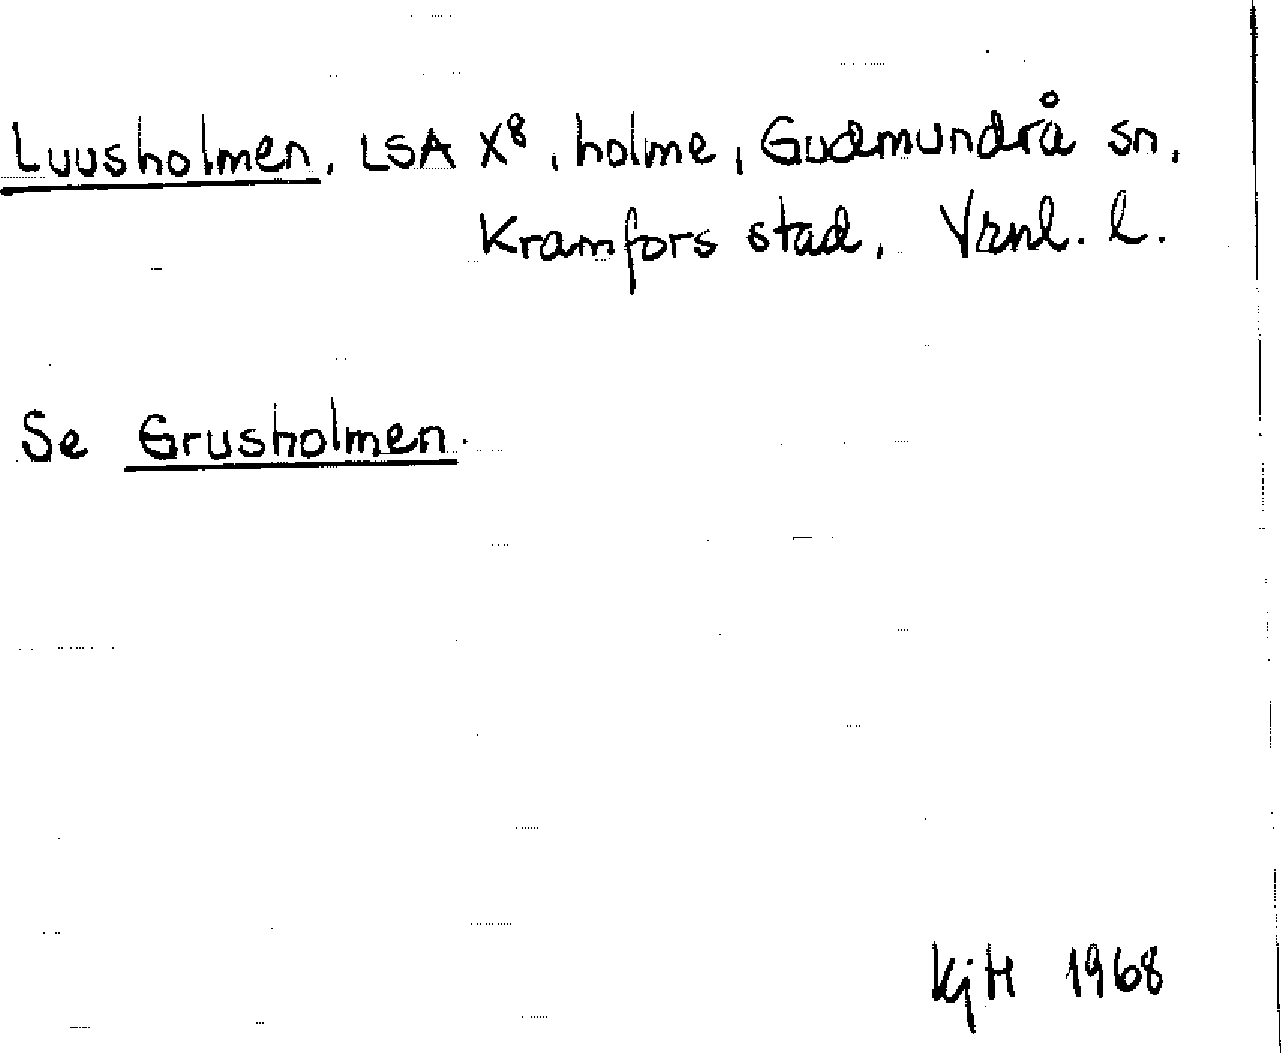 Luusholmen, LSA X⁸, holme, Gudmundrå sn,
Kramfors stad, Vrnl. l.
Se Grusholmen.
KjH 1968